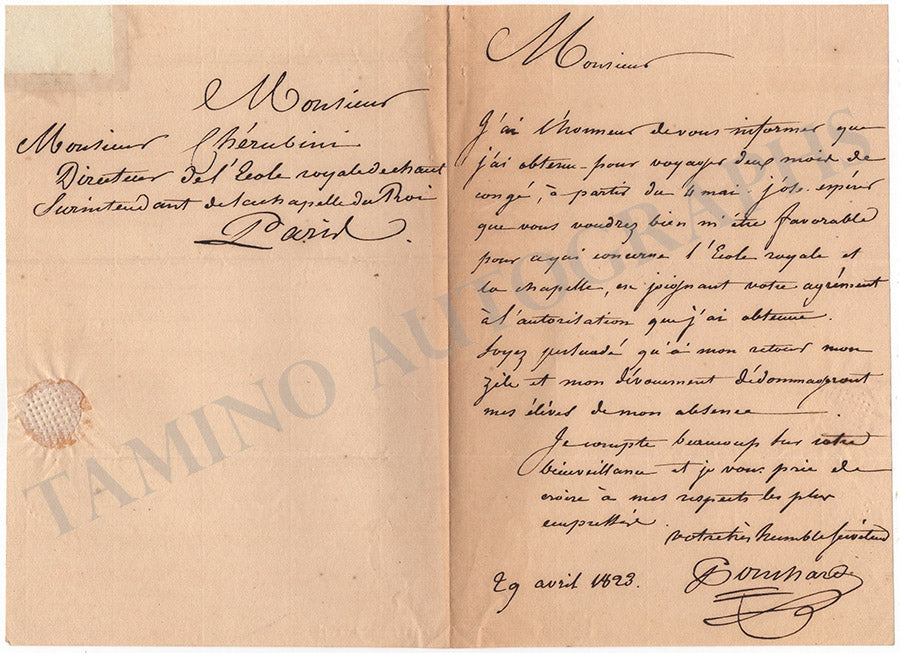 Monsieur
Monsieur Chérubini
Directeur de l'Ecole royale de chant
Surintendant de la chapelle du Roi
Paris.
Monsieur
J'ai l'honneur de vous informer que
j'ai obtenu pour voyager deux mois de
congé, à partir du 4 mai. j'ose espérer
que vous voudrez bien m'être favorable
pour ce qui concerne l'Ecole royale et
la chapelle, en joignant votre agrément
à l'autorisation que j'ai obtenue.
Soyez persuadé qu'à mon retour mon
zèle et mon dévouement dédommageront
mes élèves de mon absence.
Je compte beaucoup sur votre
bienveillance et je vous prie de
croire à mes respects les plus
empressés.
votre très humble serviteur
Ponchard
29 avril 1823.
TAMINO AUTOGRAPHS